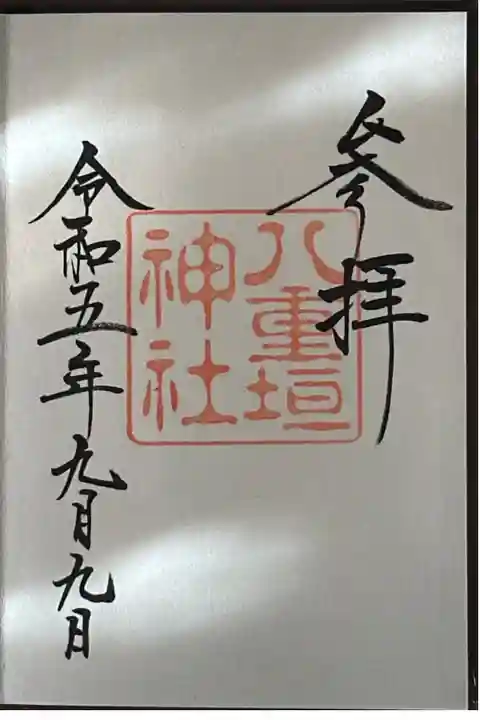 参拝
八重垣
神社
令和五年九月九日